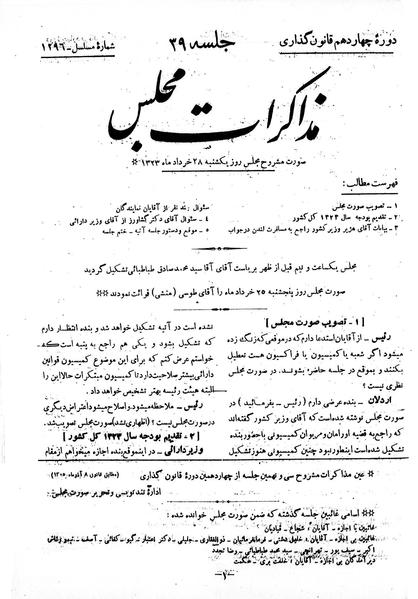 دورهٔ چهاردهم قانون گذاری
جلسه ۳۹
شمارهٔ مسلسل - ۱۲۹۶
مذاکرات مجلس
صورت مشروح مجلس روز یکشنبه ۲۸ خرداد ماه ۱۳۲۳ *
فهرست مطالب:
۱ - تصویب صورت مجلس
۲ - تقدیم بودجه سال ۱۳۲۳ کل کشور
۳ - بیانات آقای هژیر وزیر کشور راجع به مسافرت لندن درجواب
سئوال چند نفر از آقایان نمایندگان
۴ - سئوال آقای دکتر کشاورز از آقای وزیر دارائی
۵ - موقع و دستور جلسه آتیه - ختم جلسه
مجلس یکساعت و نیم قبل از ظهر بریاست آقای آقا سید محمد صادق طباطبائی تشکیل گردید
صورت مجلس روز پنجشنبه ۲۵ خرداد ماه را آقای طوسی (منشی) قرائت نمودند **
[ ۱ - تصویب صورت مجلس ]
رئیس - از آقایان استدعا دارم که در موقعی که زنگ زده
میشود اگر شعبه یا کمیسیون یا فراکسیون هست تعطیل
بکنند و بموقع در جلسه حاضر بشوند. در صورت مجلس
نظری نیست؟
اردلان - بنده عرضی دارم (رئیس - بفرمائید) در
صورت مجلس نوشته شده است که آقای وزیر کشور گفته‌اند
که راجع به قضیه اورامان و مریوان کمیسیونی با حضور بنده
تشکیل شده است اینطور نبود چنین کمیسیونی هنوز تشکیل
نشده است در آتیه تشکیل خواهد شد و بنده انتظار دارم
که تشکیل بشود و یکی هم راجع به پنبه است که
خواستم عرض کنم که برای این موضوع کمیسیون قوانین
دارائی بیشتر صلاحیت دارد تا کمیسیون مبتکرات حالا این را
البته هیئت رئیسه بهتر تشخیص خواهد داد.
رئیس - ملاحظه میشود و اصلاح میشود اعتراض دیگری
در صورت مجلس نیست؟ (اظهاری نشد) صورت مجلس تصویب شد.
[ ۲ - تقدیم بودجه سال ۱۳۲۳ کل کشور ]
وزیر دارائی - در اینموقع بنده اجازه میخواهم از مقام
* عین مذاکرات مشروح سی و نهمین جلسه از چهاردهمین دورهٔ قانون گذاری
اداره تندنویسی و تحریر صورت مجلس
** اسامی غائبین جلسه گذشته که ضمن صورت مجلس خوانده شده:
غائبین با اجازه - آقایان: شجاع - قبادیان
غائبین بی اجازه - آقایان
دیر آمدگان بی اجازه - آقایان
-۱-